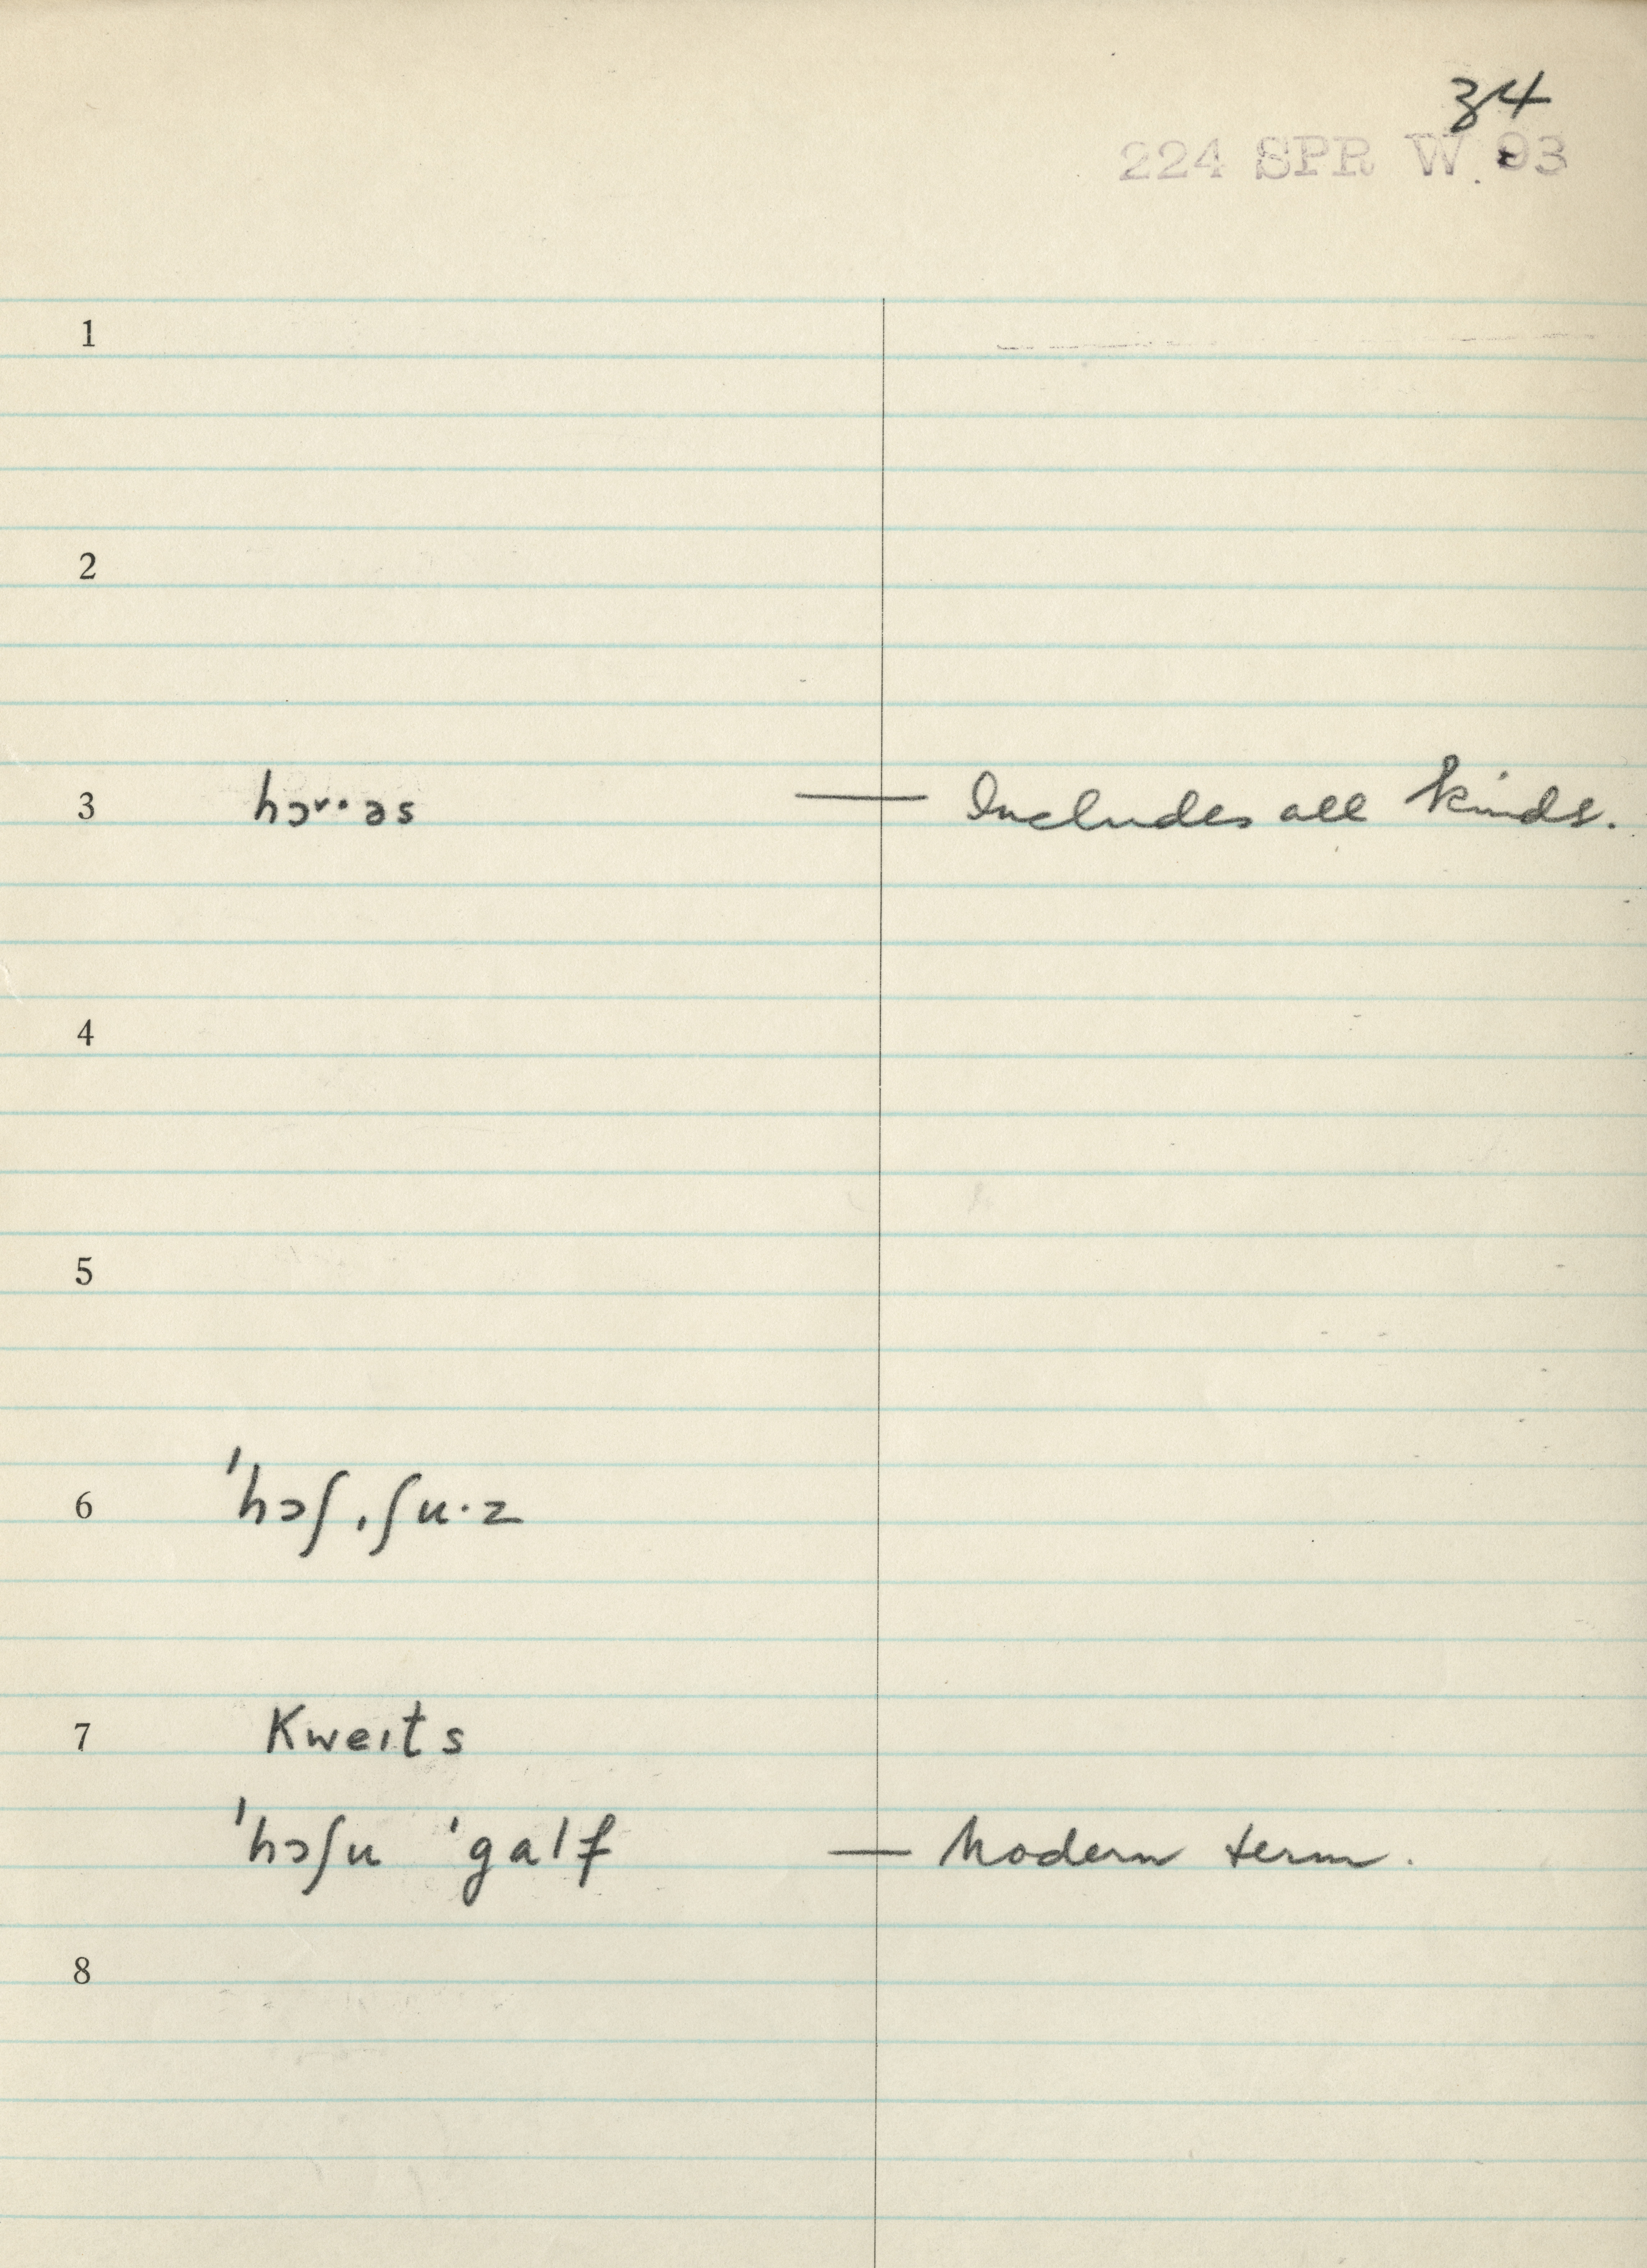 34
224 SPR W 93
1
2
3 hɔ˅·əs — Includes all kinds.
4
5
6 'hɔʃˌʃu·z
7 Kweɪts
'hɔʃu 'galf — Modern term.
8